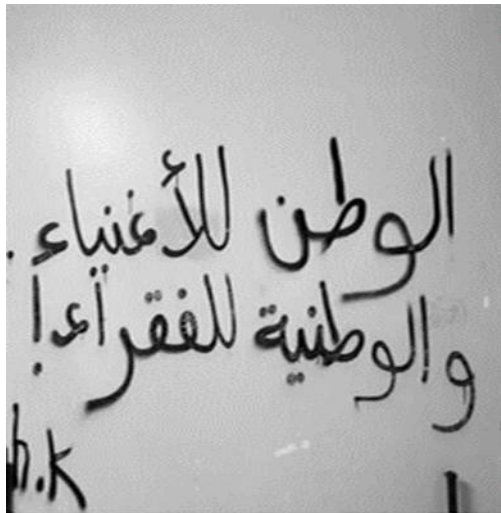 الوطن للأغنياء.
والوطنية للفقراء!
h.k